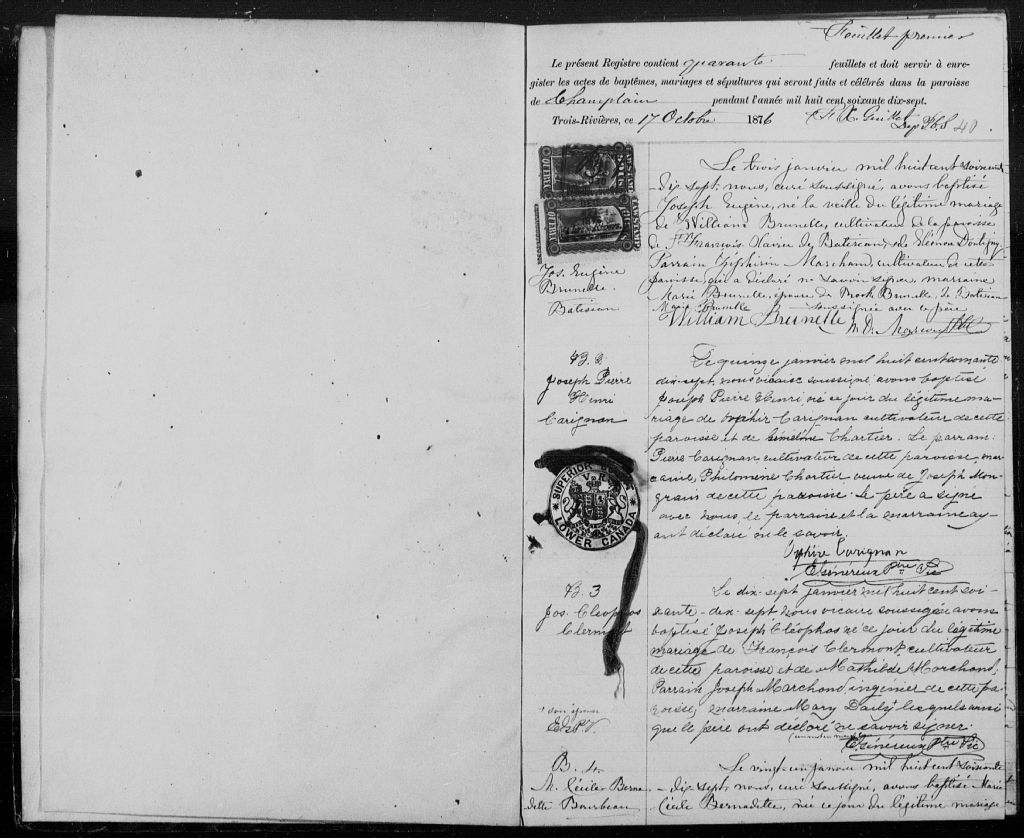 Feuillet premier
Le présent Registre contient quarante feuillets et doit servir à enre-
gister les actes de baptêmes, mariages et sépultures qui seront faits et célébrés dans la paroisse
de Champlain pendant l'année mil huit cent soixante dix-sept.
Trois-Rivières, ce 17 Octobre 1876 F X Guillet
Dep 40
Le trois janvier mil huit cent soixante
-dix sept, nous, curé soussigné, avons baptisé
Joseph Eugène, né la veille du légitime mariage
de William Brunelle, cultivateur de la paroisse
de St François Xavier de Batiscan, et de Eléonore
Parrain Marchand, cultivateur de cette
paroisse, qui a déclaré ne savoir signer, marraine
Marie Brunelle, épouse de Brunelle, de Batiscan
soussignée avec le père
Marie Brunelle
William Brunelle
Jos. Eugène
Brunelle
Batiscan
B. 2
Joseph Pierre
Henri
Carignan
Le quinze janvier mil huit cent soixante
dix-sept, nous vicaire soussigné avons baptisé
Joseph Pierre Henri, né ce jour du légitime ma-
riage de Carignan cultivateur de cette
paroisse et de Chartier. Le parrain:
Pierre Carignan, cultivateur de cette paroisse, mar-
raine, Philomène Chartier veuve de Joseph Mon-
grain de cette paroisse. Le père a signé
avec nous, le parrain et la marraine ay-
ant déclaré ne le savoir.
Carignan
Ptre Vic
SUPERIOR
V R
LOWER CANADA
B. 3
Jos. Cléophas
Clermont
Le dix-sept janvier mil huit cent soi-
xante-dix-sept nous vicaire soussigné avons
baptisé Joseph Cléophas né ce jour du légitime
mariage de François Clermont, cultivateur
de cette paroisse et de Mathilde Marchand.
Parrain Joseph Marchand, ingénier de cette pa-
roisse, marraine Mary Daily lesquels ainsi
que le père ont déclaré ne savoir signer.
+ son épouse
Ptre Vic
B. 4
M. Cécile Berna
dette Bourbeau
Le vingt-un janvier mil huit cent soixante
-dix sept, nous, curé soussigné, avons baptisé Marie
Cécile Bernadette, née ce jour du légitime mariage